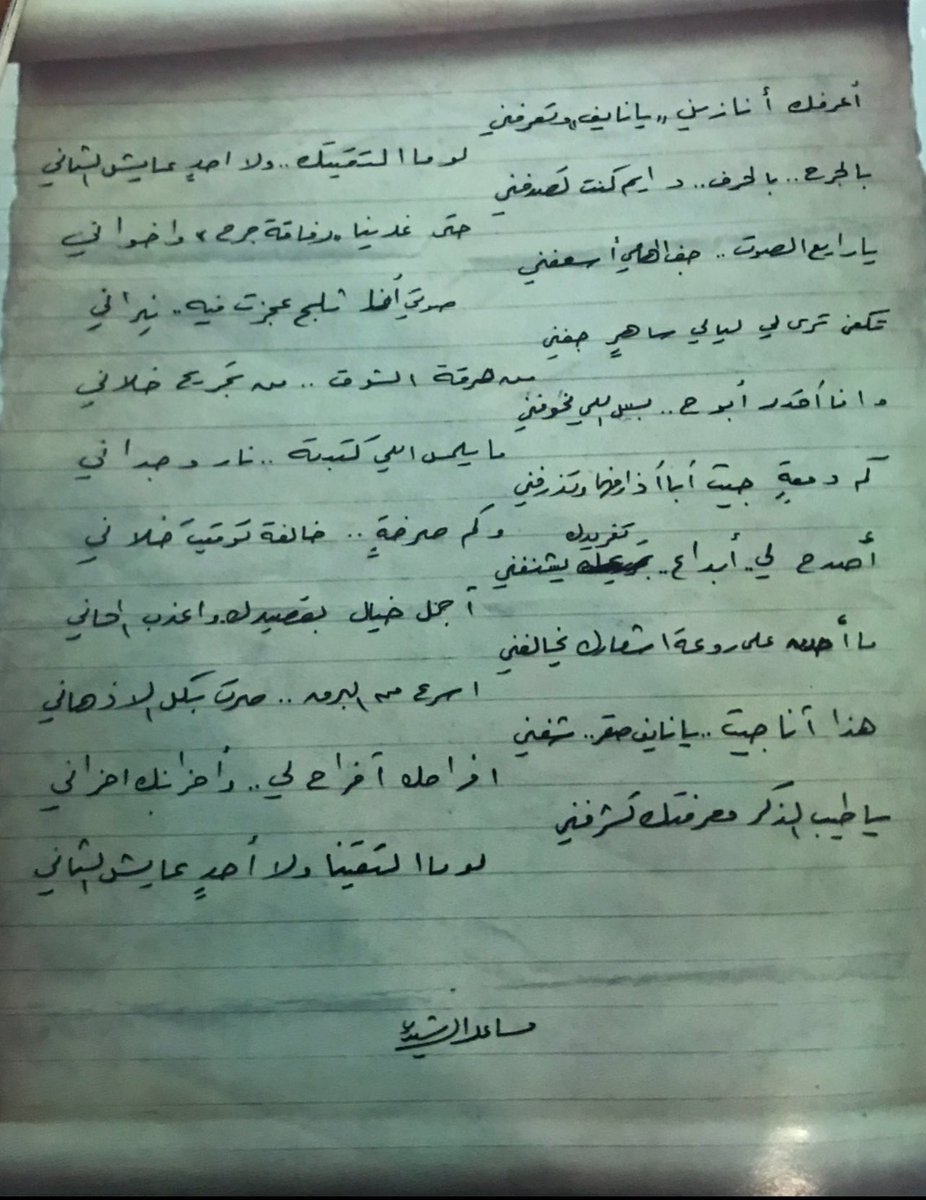 أعرفك أنا زمنٍ "يا نايف" وتعرفني
لو ما التقيتك.. ولا احدٍ عايش الثاني
بالجرح.. بالحرف.. دايم كنت تصدفني
حتى غدينا "رفاقة جرح" واخواني
يا رايع الصوت.. جف الهلي أسعفني
صوتي أنا ثلج عجزت فيه.. نيراني
تكفى ترى لي ليالي ساهرٍ جفني
من حرقة الشوق.. من تجريح خلاني
وانا أقدر أبوح.. بس اللي يخوفني
ما يلمس اللي كتبته.. نار وجداني
كم دمعةٍ جيت أبا أذارفها وتذرفني
وكم صرخةٍ.. خالفة توقيت خلاني
أصدح لي.. أبداع.. تغريدك يشنفني
أجمل خيال بقصيدك واعذب الحاني
ما أحدٍ على روعة اشعارك يخالفني
اسرع من البرق.. صرت بكل الاذهاني
هذا أنا جيت.. يا نايف صقر.. شفني
افراحك أفراح لي.. وأحزانك احزاني
يا طيب الذكر معرفتك تشرفني
لو ما التقينا ولا أحدٍ عايش الثاني
مساعد الرشيدي